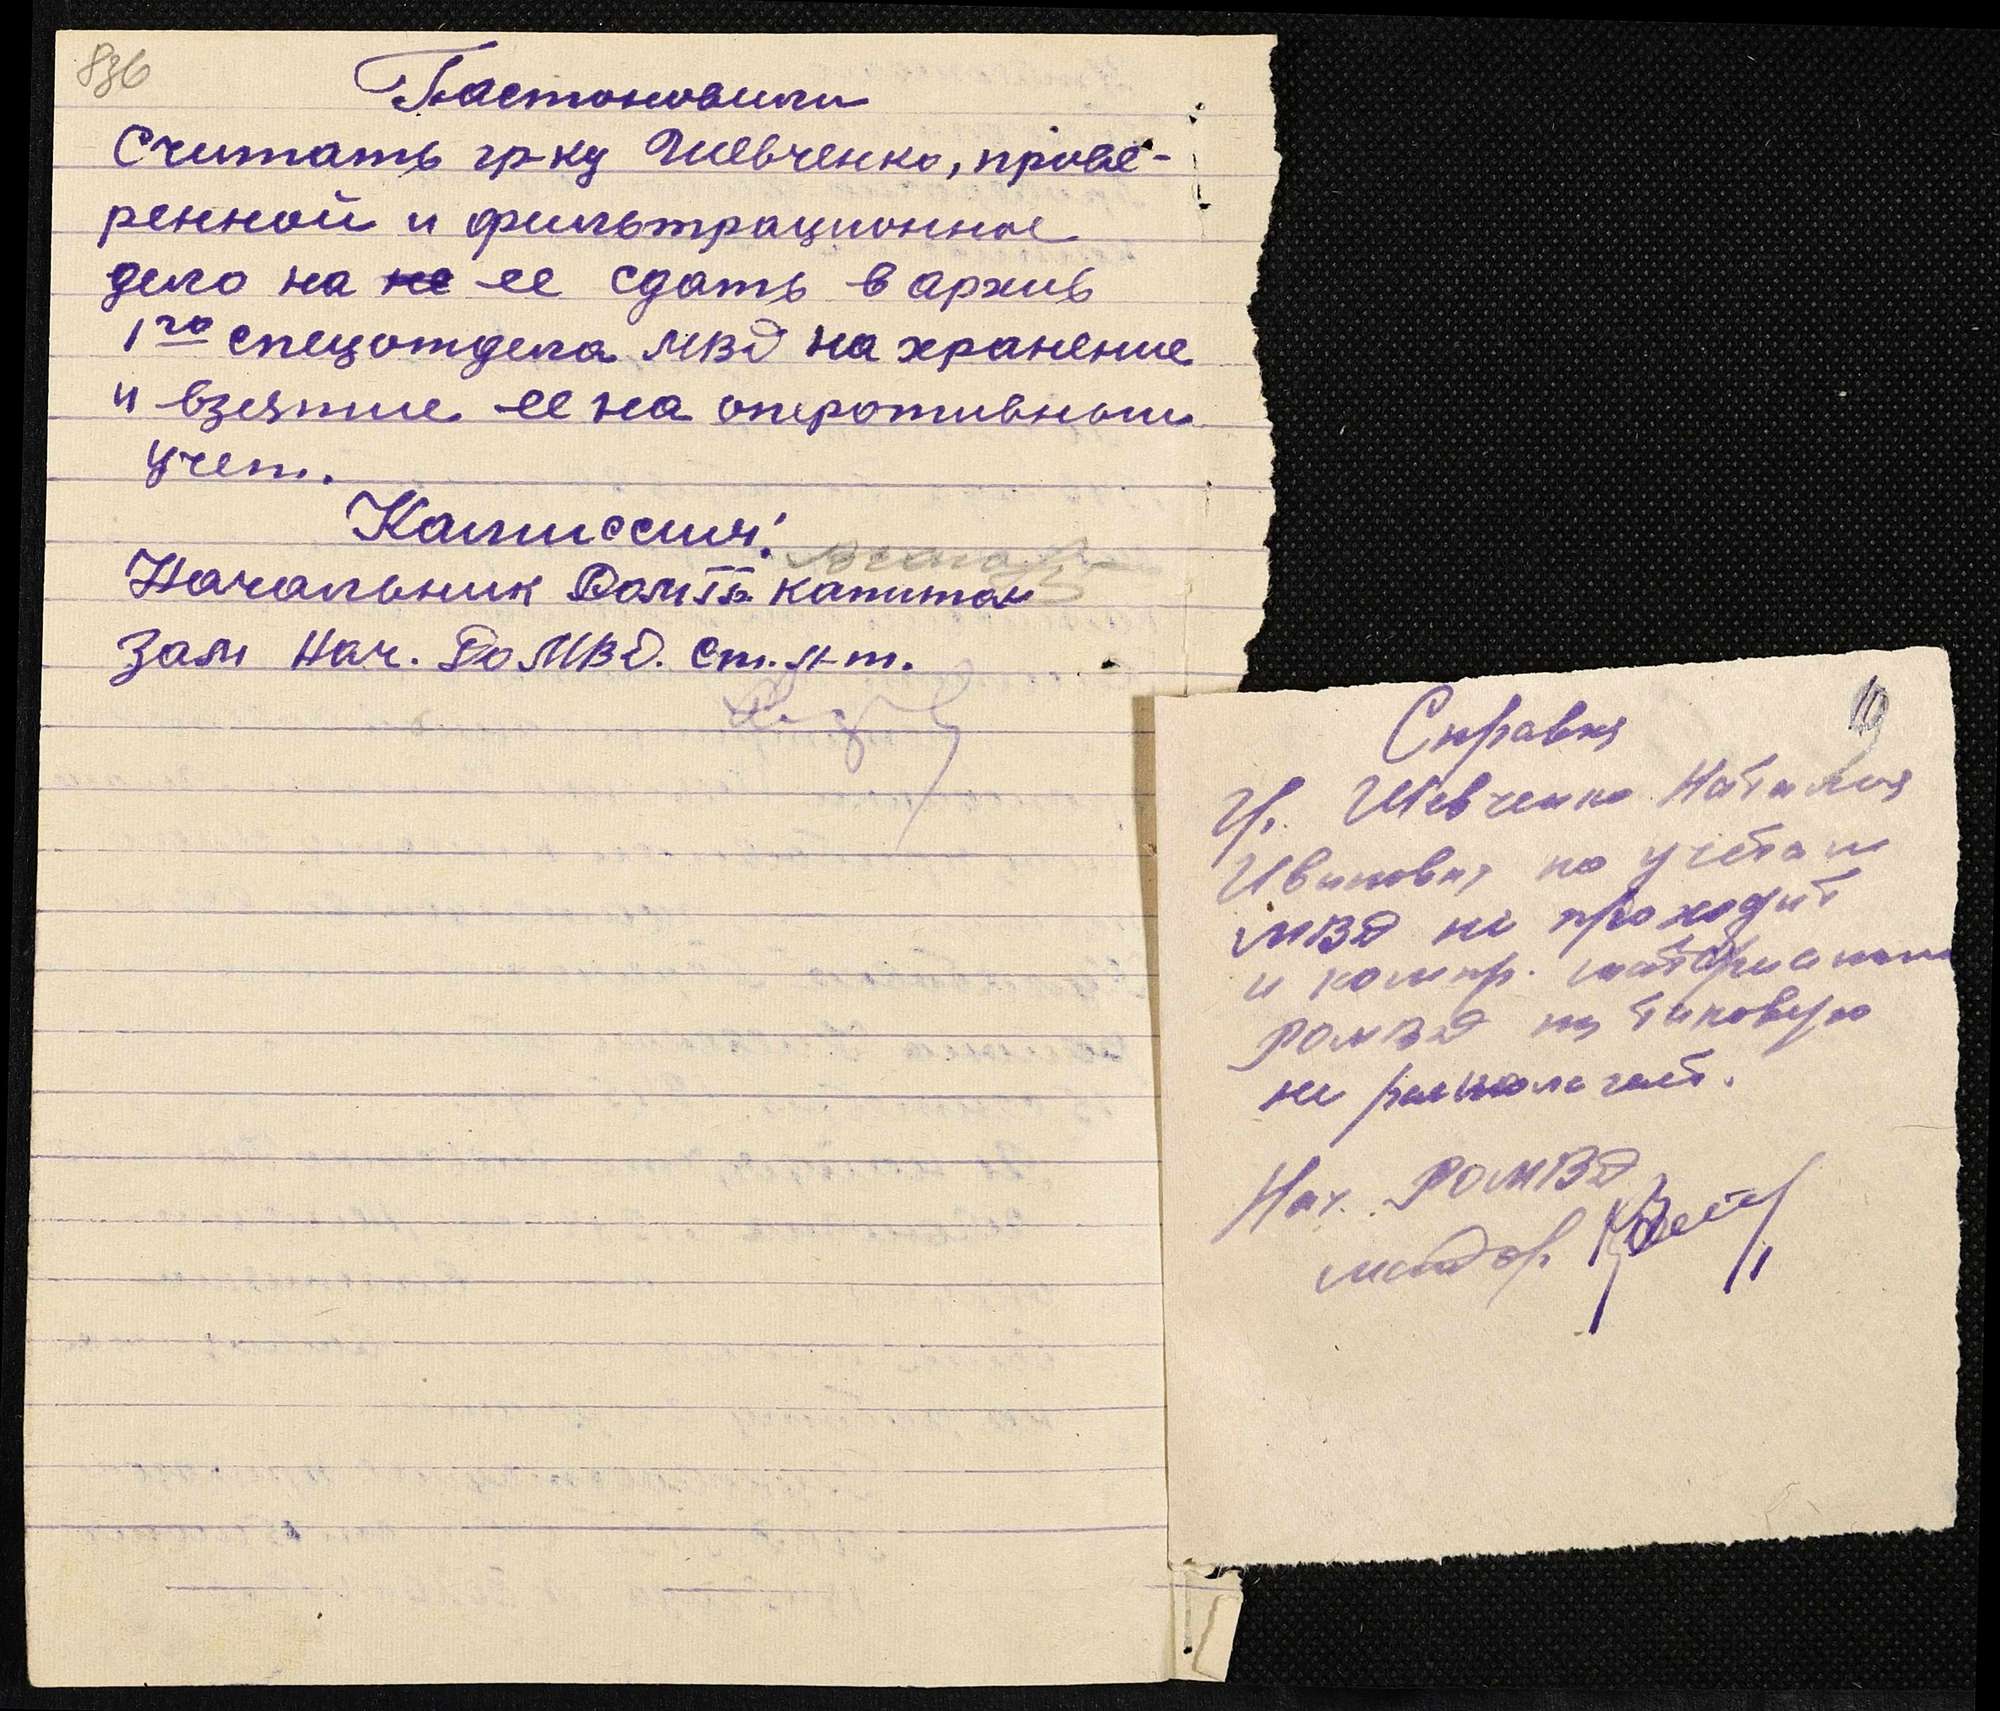 836
Пастоновили
Считать гр-ку Шевченко, прове-
ренной и фильтрационное
дело на не ее сдать в архив
1го спецотдела МВД на хранение
и взятие ее на оперотивным
учет.
Камиссия:
Начальник капитан
Зам Нач. Ро МВД. Ст. л-т.
10
Справка
Гр. Шевченко Наталия
Ивановна по учетам
МВД не проходит
и компр. материалами
РОМВД на таковую
не располагает.
Нач. РОМВД
майор